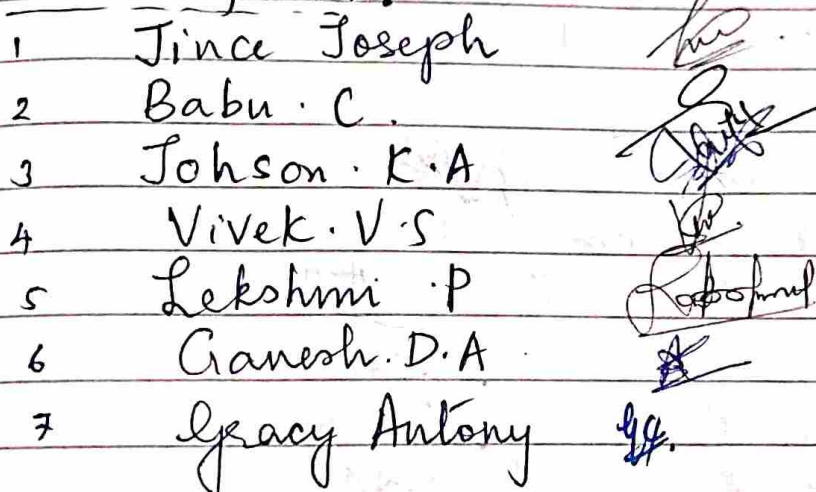 1 Jince Joseph
2 Babu . C .
3 Johson . K . A
4 Vivek . V . S
5 Lekshmi . P
6 Ganesh . D . A
7 Gracy Antony